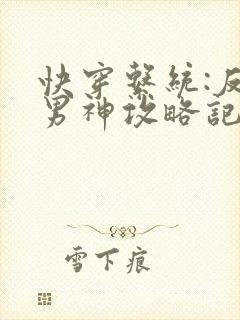 快穿繫統:反
男神攻略記
雪下痕